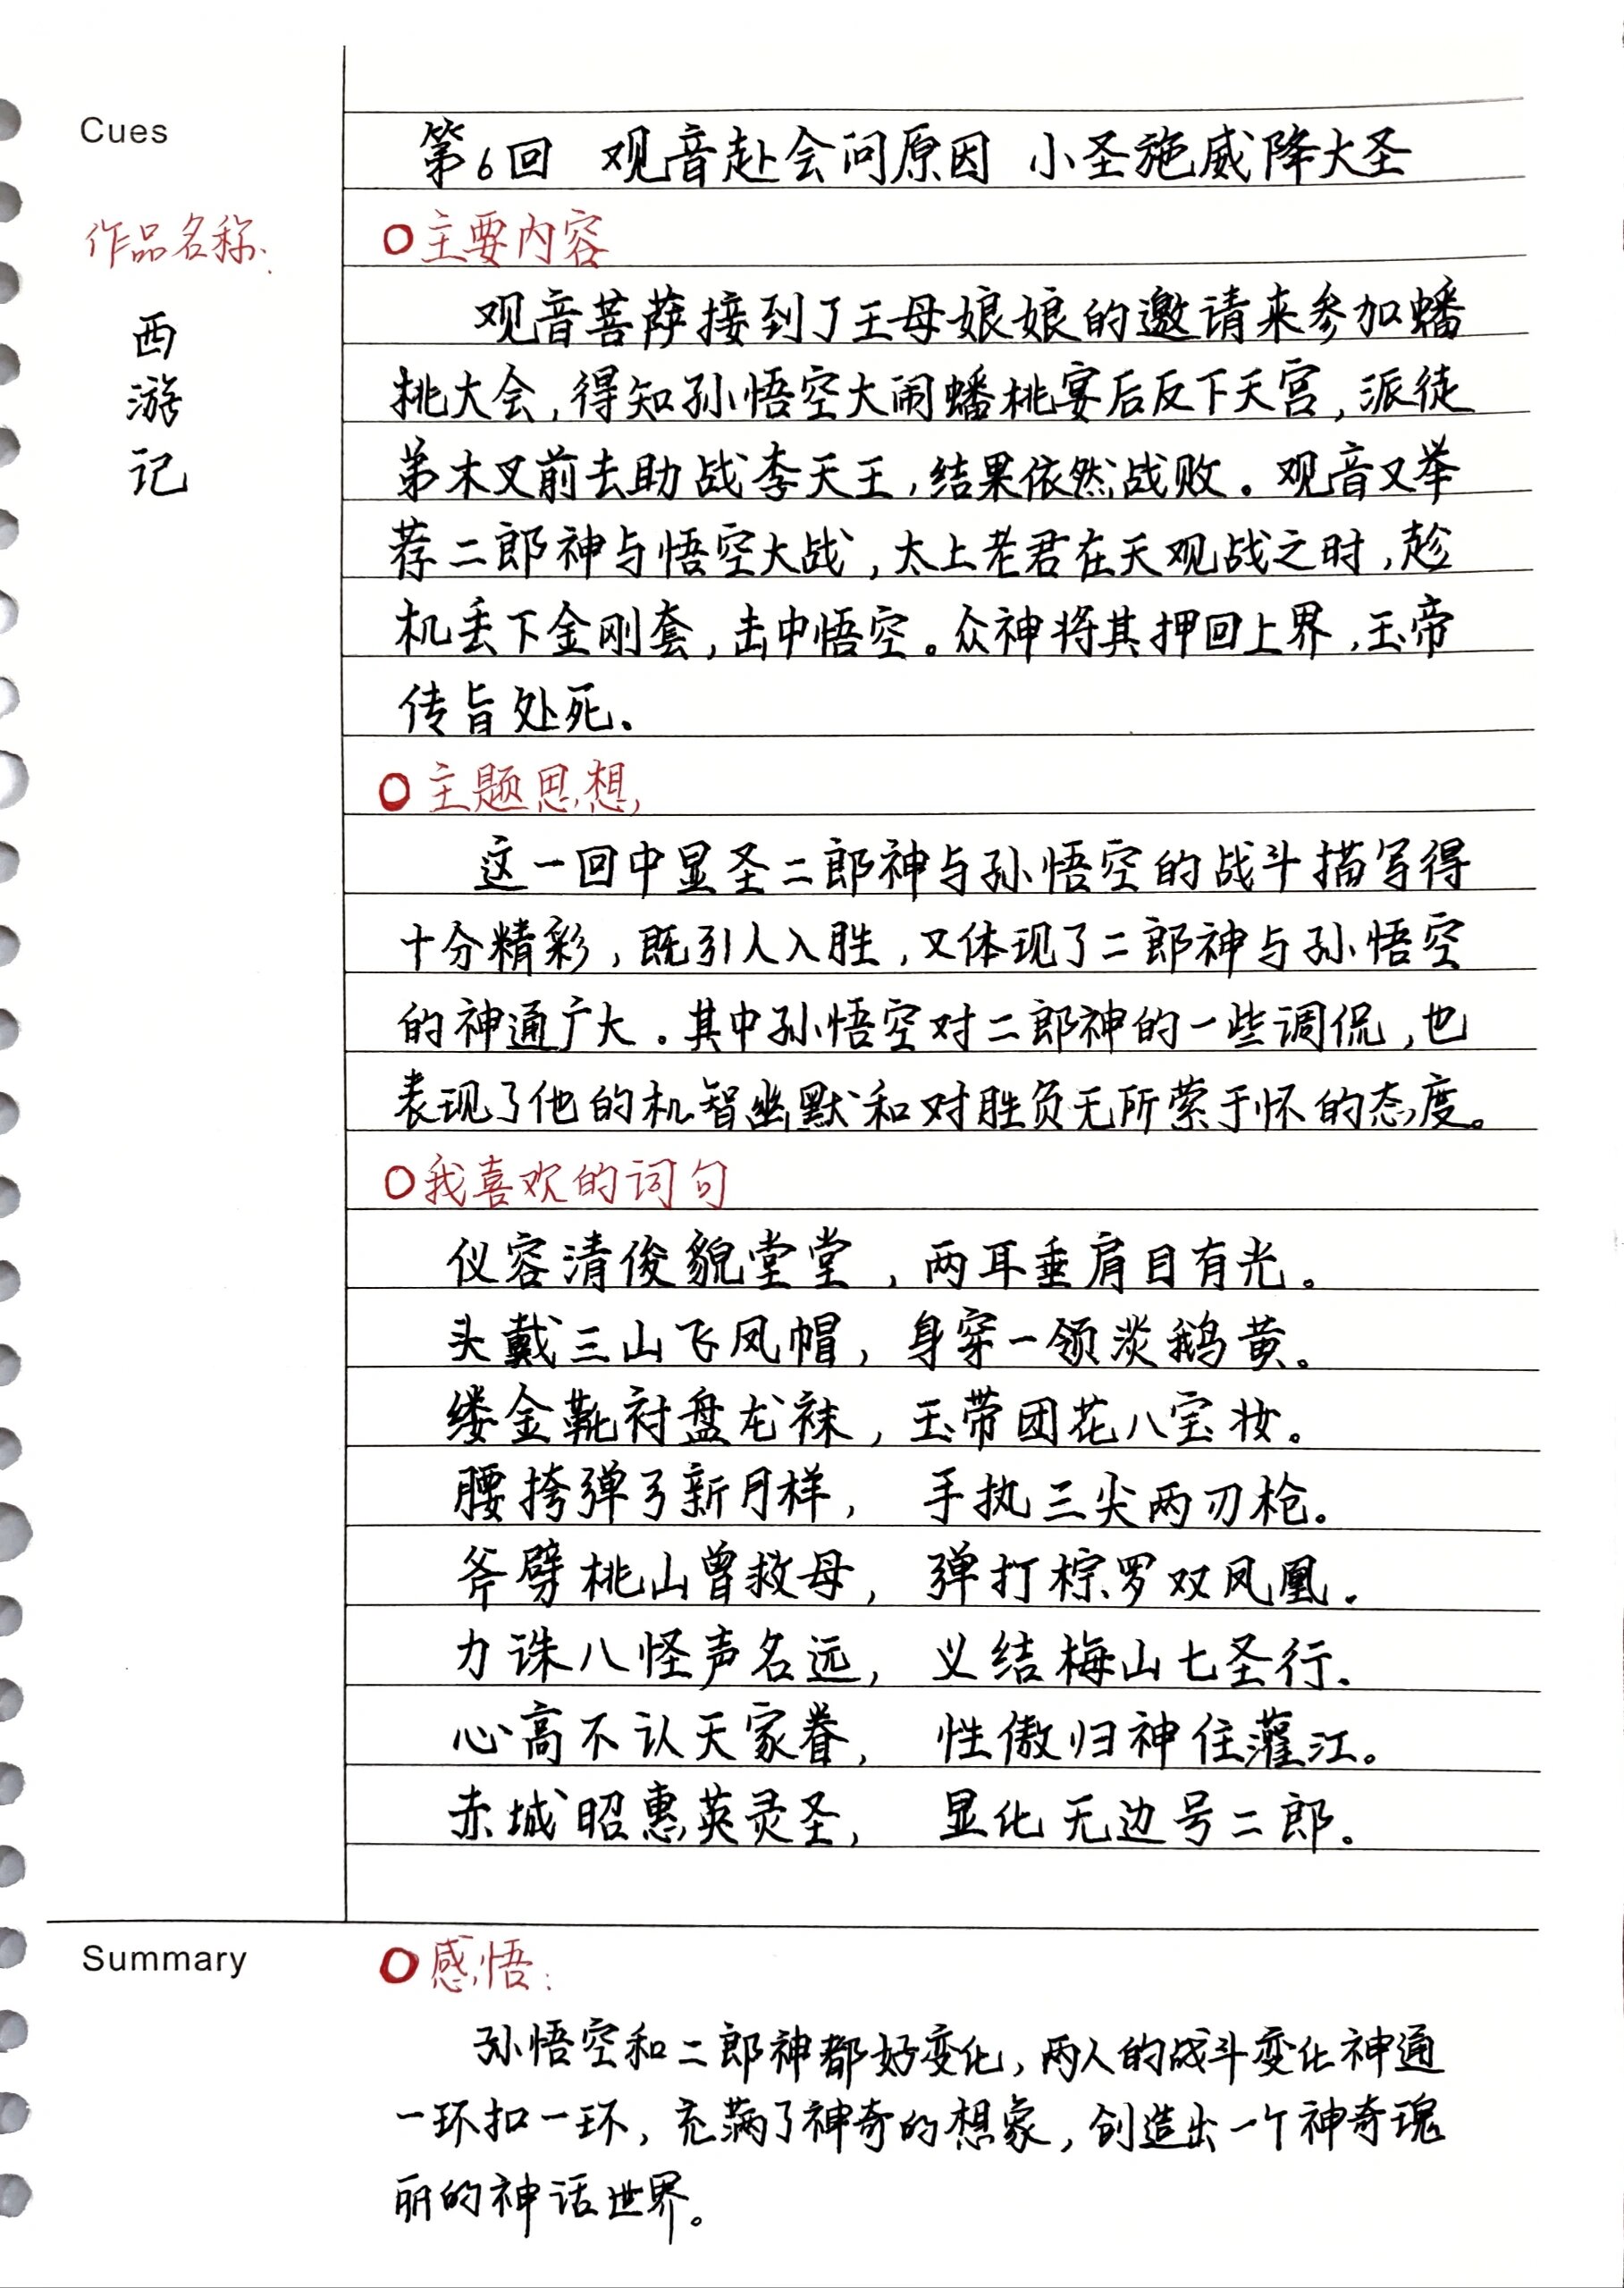 Cues
作品名称:
西
游
记
第6回 观音赴会问原因 小圣施威降大圣
○主要内容
观音菩萨接到了王母娘娘的邀请来参加蟠
桃大会,得知孙悟空大闹蟠桃宴后反下天宫,派徒
弟木叉前去助战李天王,结果依然战败。观音又举
荐二郎神与悟空大战,太上老君在天观战之时,趁
机丢下金刚套,击中悟空。众神将其押回上界,玉帝
传旨处死。
○主题思想
这一回中显圣二郎神与孙悟空的战斗描写得
十分精彩,既引人入胜,又体现了二郎神与孙悟空
的神通广大。其中孙悟空对二郎神的一些调侃,也
表现了他的机智幽默和对胜负无所萦于怀的态度。
○我喜欢的词句
仪容清俊貌堂堂,两耳垂肩目有光。
头戴三山飞凤帽,身穿一领淡鹅黄。
缕金靴衬盘龙袜,玉带团花八宝妆。
腰挎弹弓新月样,手执三尖两刃枪。
斧劈桃山曾救母,弹打棕罗双凤凰。
力诛八怪声名远,义结梅山七圣行。
心高不认天家眷,性傲归神住灌江。
赤城昭惠英灵圣,显化无边号二郎。
Summary
○感悟:
孙悟空和二郎神都好变化,两人的战斗变化神通
一环扣一环,充满了神奇的想象,创造出一个神奇瑰
丽的神话世界。